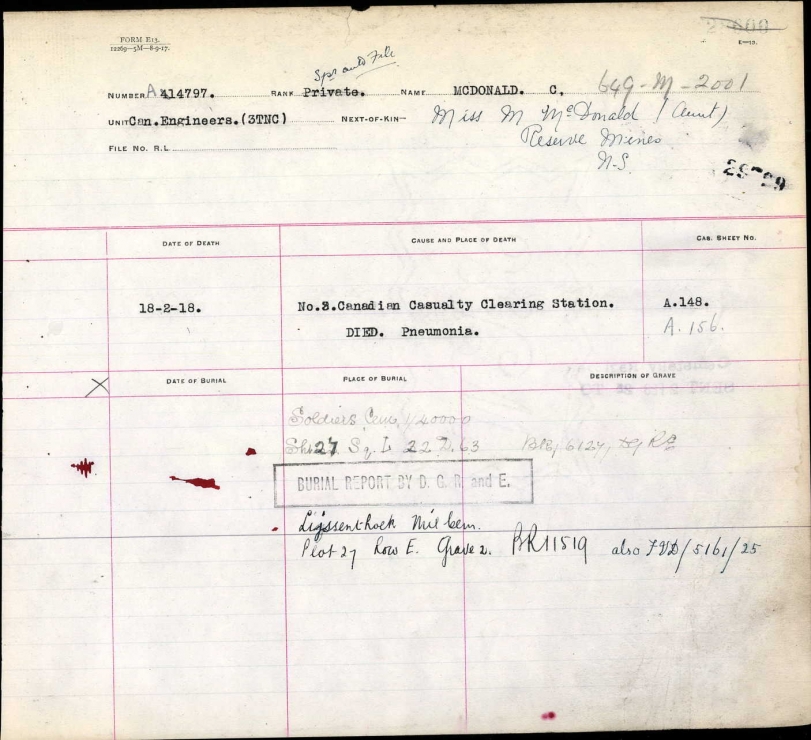 FORM E13.
12269—5M—8-9-17.
E—13.
Spr auto File
NUMBER A 414797. RANK Private. NAME MCDONALD. C, 649-M-2001
UNIT Can.Engineers.(3TNC) NEXT-OF-KIN— Miss M McDonald (Aunt)
Reserve Mines
N.S.
FILE NO. R.L.
29729
DATE OF DEATH CAUSE AND PLACE OF DEATH CAS. SHEET NO.
18-2-18. No.3.Canadian Casualty Clearing Station. A.148.
DIED. Pneumonia. A.156.
DATE OF BURIAL PLACE OF BURIAL DESCRIPTION OF GRAVE
Soldiers Cem, 1/40000
Sht 27 Sq. L 22 D. 63
BURIAL REPORT BY D. G. R. and E.
Lijssenthoek Mil Cem.
Plot 27 Row E. Grave 2. BR11519 also FVD/5161/25